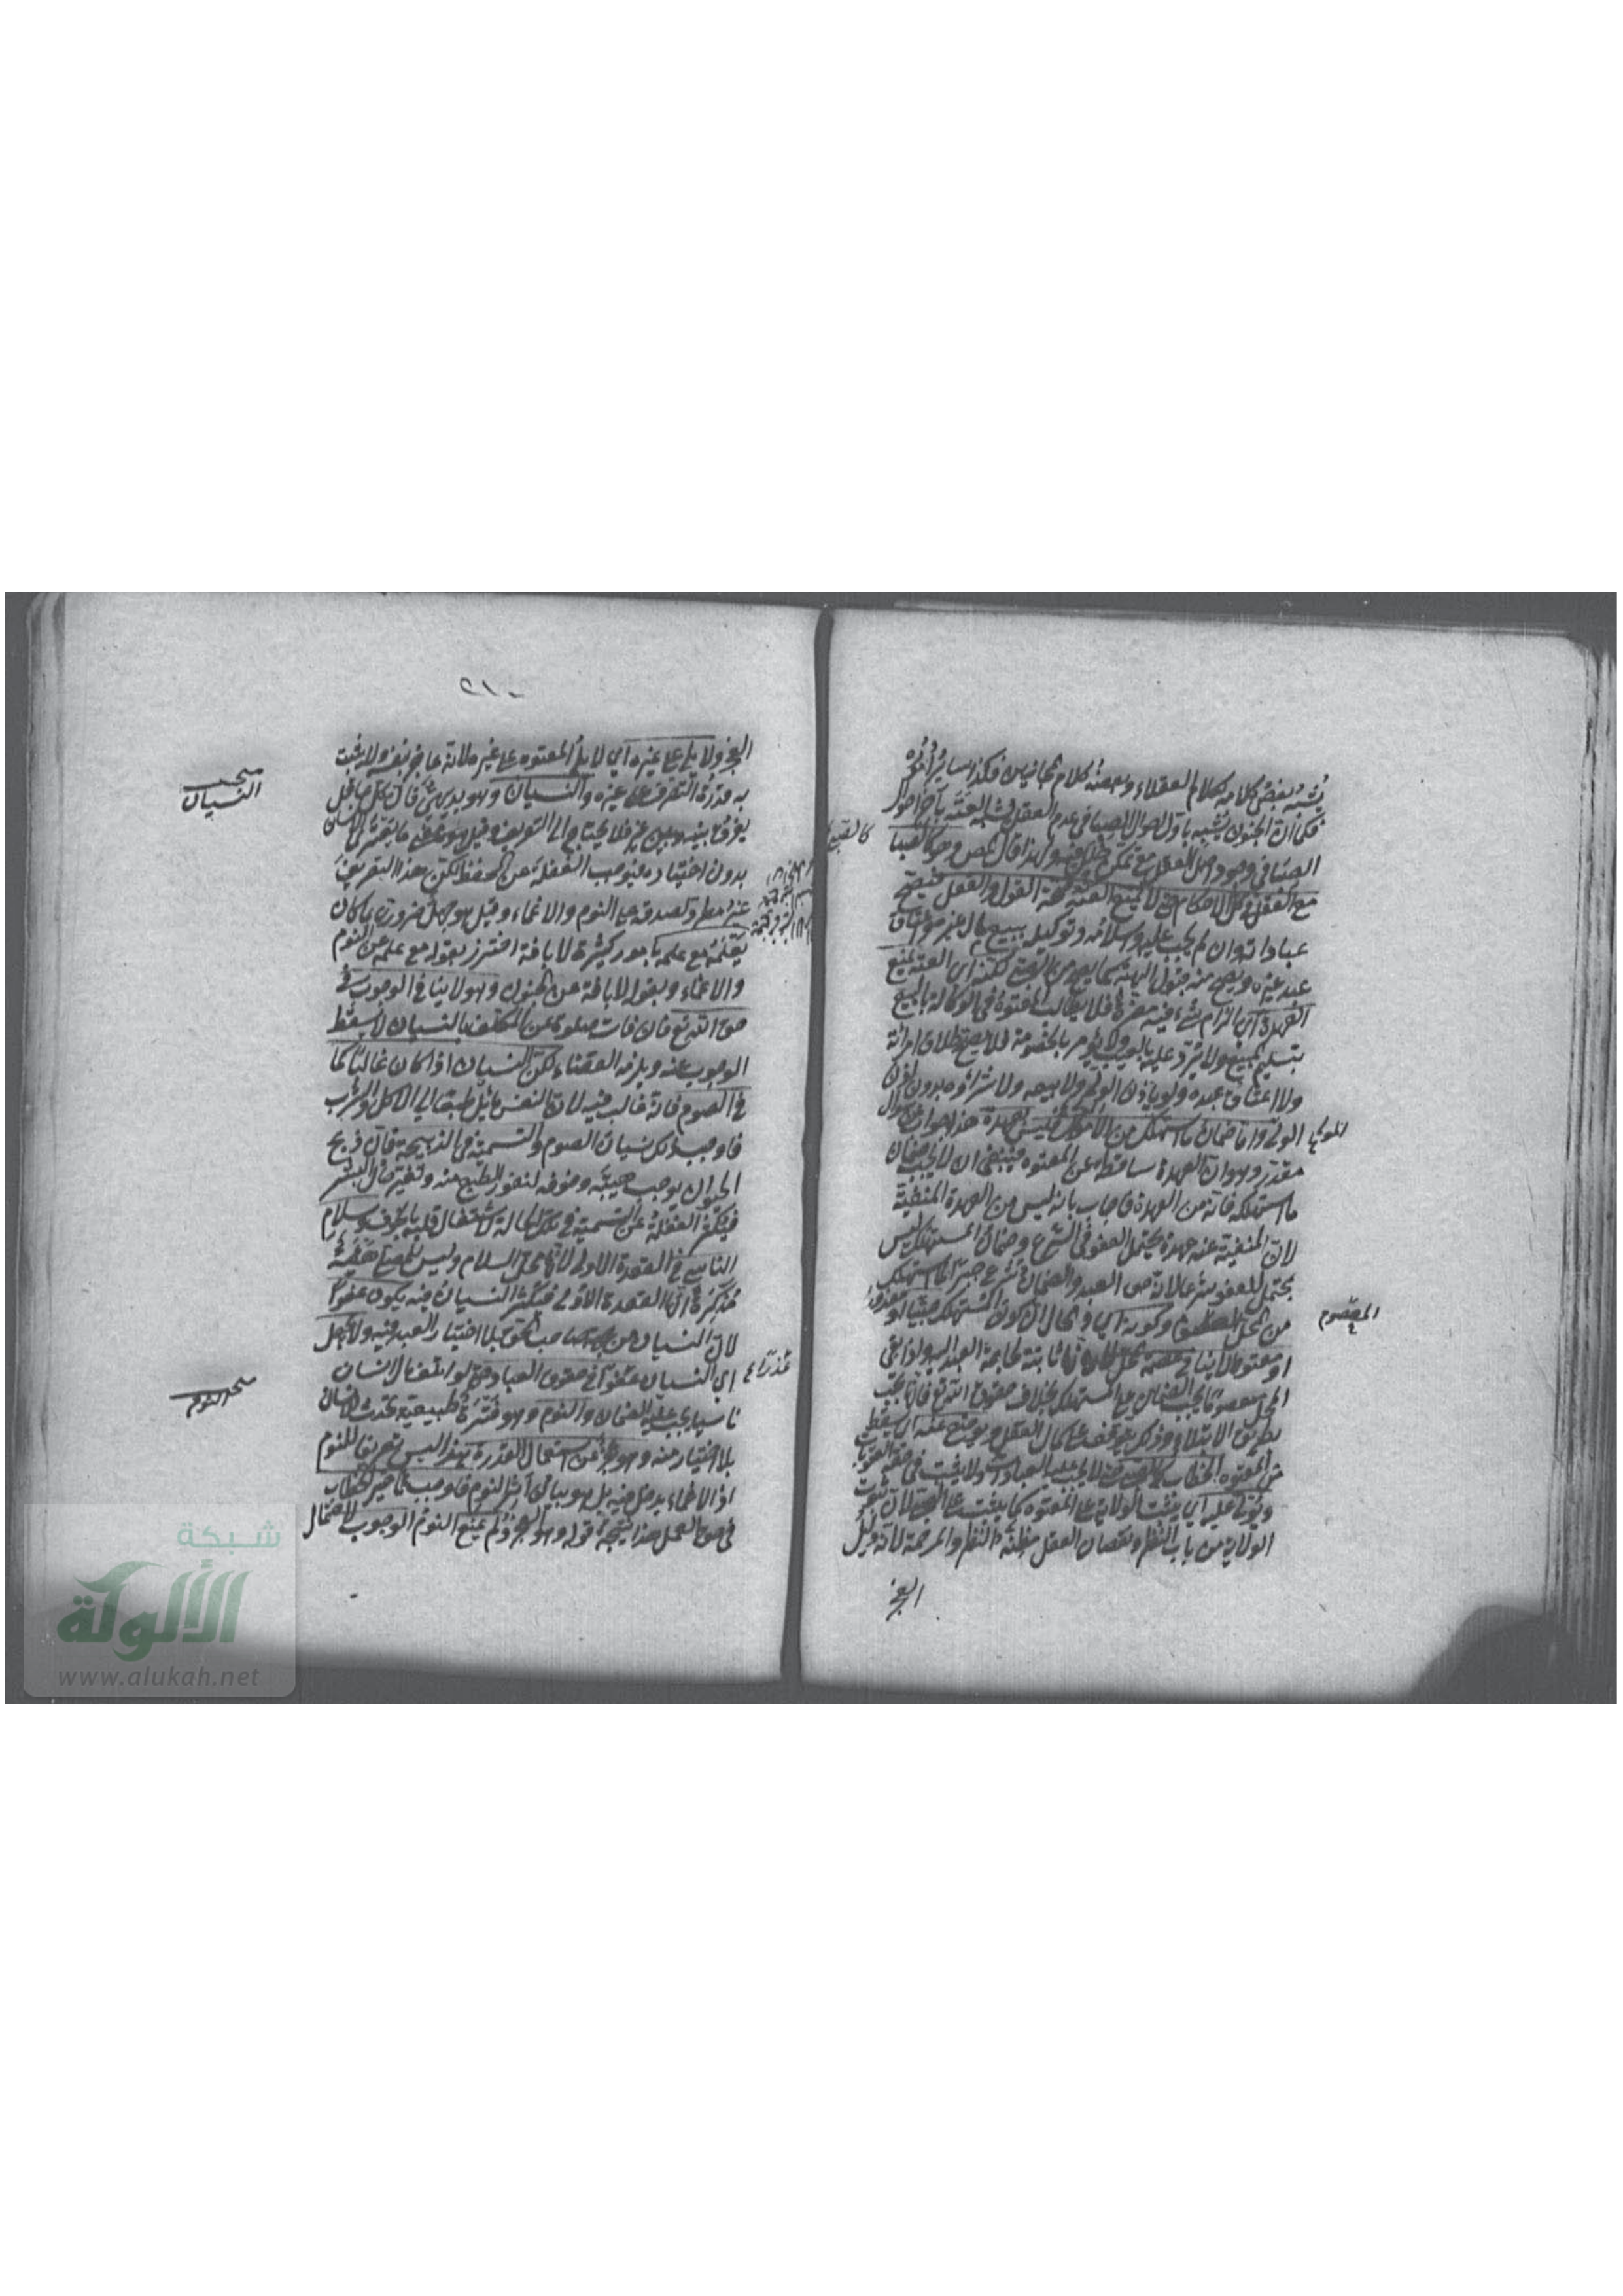 يشبه بعض كلامه كلام العقلاء وبعضه كلام المجانين فكذا سائر أموره
فكما ان الجنون يشبه باول احوال الصبا في عدم العقل يشبه العته بآخر احوال
الصبا في وجود اصل العقل مع تمكن خلل فيه ولهذا قال المص وهو كالصبا
مع العقل في كل الاحكام حتى لا يمنع العته صحة القول والفعل فيصح
عباداته وان لم يجب عليه واسلامه وتوكيله ببيع مال غيره واعتاق
عبد غيره ويصح منه قبول الهبة كما يصح من الصبي لكنه اي العته يمنع
العهدة اي الزام شيء فيه مضرة فلا يطالب المعتوه في الوكالة بالبيع
بتسليم المبيع ولا يرد عليه بالعيب ولا يؤمر بالخصومة فلا يصح طلاق امرأته
ولا اعتاق عبده ولو باذن الولي ولا بيعه ولا شراؤه بدون اذن
الولي واما ضمان ما استهلك من الاموال فليس بعهدة هذا جواب عن سؤال
مقدر وهو ان العهدة ساقطة عن المعتوه فينبغي ان لا يجب ضمان
ما استهلكه فانه من العهدة فاجاب بانه ليس من العهدة المنفية
لان المنفية عنه عهدة يحتمل العفو في الشرع وضمان المستهلك ليس
بمحتمل للعفو شرعا لانه حق العبد والضمان شرع جبرا لما استهلك
من المحل وكونه اي والحال ان كون المستهلك صبيا او معذورا
او معتوها لا ينافي عصمة المحل لانها ثابتة لحاجة العبد اليه ولذا بقي
المحل معصوما فيجب الضمان على المستهلك بخلاف حقوق الله تع فانها تجب
بطريق الابتلاء وذلك يتوقف على كمال العقل ويوضع عنه اي يسقط
عن المعتوه الخطاب كالصبي حتى لا يجب عليه العبادات ولا يثبت في حقه العقوبات
ويولى عليه اي يثبت الولاية على المعتوه كما يثبت على الصبي لان ثبوت
الولاية من باب النظر ونقصان العقل مظنة النظر والمرحمة لانه دليل
العجز
كالصبي
المعصوم
٢١٠
العجز ولا يلي على غيره اي لا يلي المعتوه على غيره لانه عاجز بنفسه ولا يثبت
به قدرة التصرف على غيره والنسيان وهو بديهي فان كل عاقل
يفرق بينه وبين غيره فلا يحتاج الى التعريف وقيل هو معنى يعتري الانسان
بدون اختياره فيوجب الغفلة عن الحفظ لكن هذا التعريف
غير مطرد لصدقه على النوم والاغماء وقيل هو جهل ضروري بما كان
يعلمه مع علمه بامور كثيرة لا بآفة احترز بقوله مع علمه عن النوم
والاغماء وبقوله لا بآفة عن الجنون وهو لا ينافي الوجوب في
حق الله تع فان فات صلوة عن المكلف بالنسيان لا يسقط
الوجوب عنه ويلزمه القضاء لكن النسيان اذا كان غالبا كما
في الصوم فانه غالب فيه لان النفس مائل طبعا الى الاكل والشرب
فاوجب ذلك نسيان الصوم والتسمية في الذبيحة فان ذبح
الحيوان يوجب هيبة وخوفا لنفور الطبع منه وتغير حال البشر
فيكثر الغفلة عن التسمية في تلك الحالة لاشتغال قلبه بالخوف وسلام
الناسي في القعدة الاولى لانها محل السلام وليس للمصلي هيئة
مذكرة ان القعدة الاولى فيكثر النسيان فيه يكون عفوا
لان النسيان من جهة صاحب الحق بلا اختيار العبد فيه ولا يجعل
اي النسيان عفوا في حقوق العباد حتى لو اتلف مال انسان
ناسيا يجب عليه الضمان والنوم وهو فترة طبيعية تحدث للانسان
بلا اختيار منه وهو عجز عن استعمال القدرة هذا ليس تعريفا للنوم
اذ الاغماء يدخل فيه بل هو بيان اثر النوم فاوجب تأخير الخطاب
في حق العمل هذا نتيجة قوله وهو عجز ولم يمنع النوم الوجوب لاحتمال
مبحث
النسيان
مبحث النوم
عذرا
شبكة
الألوكة
www.alukah.net